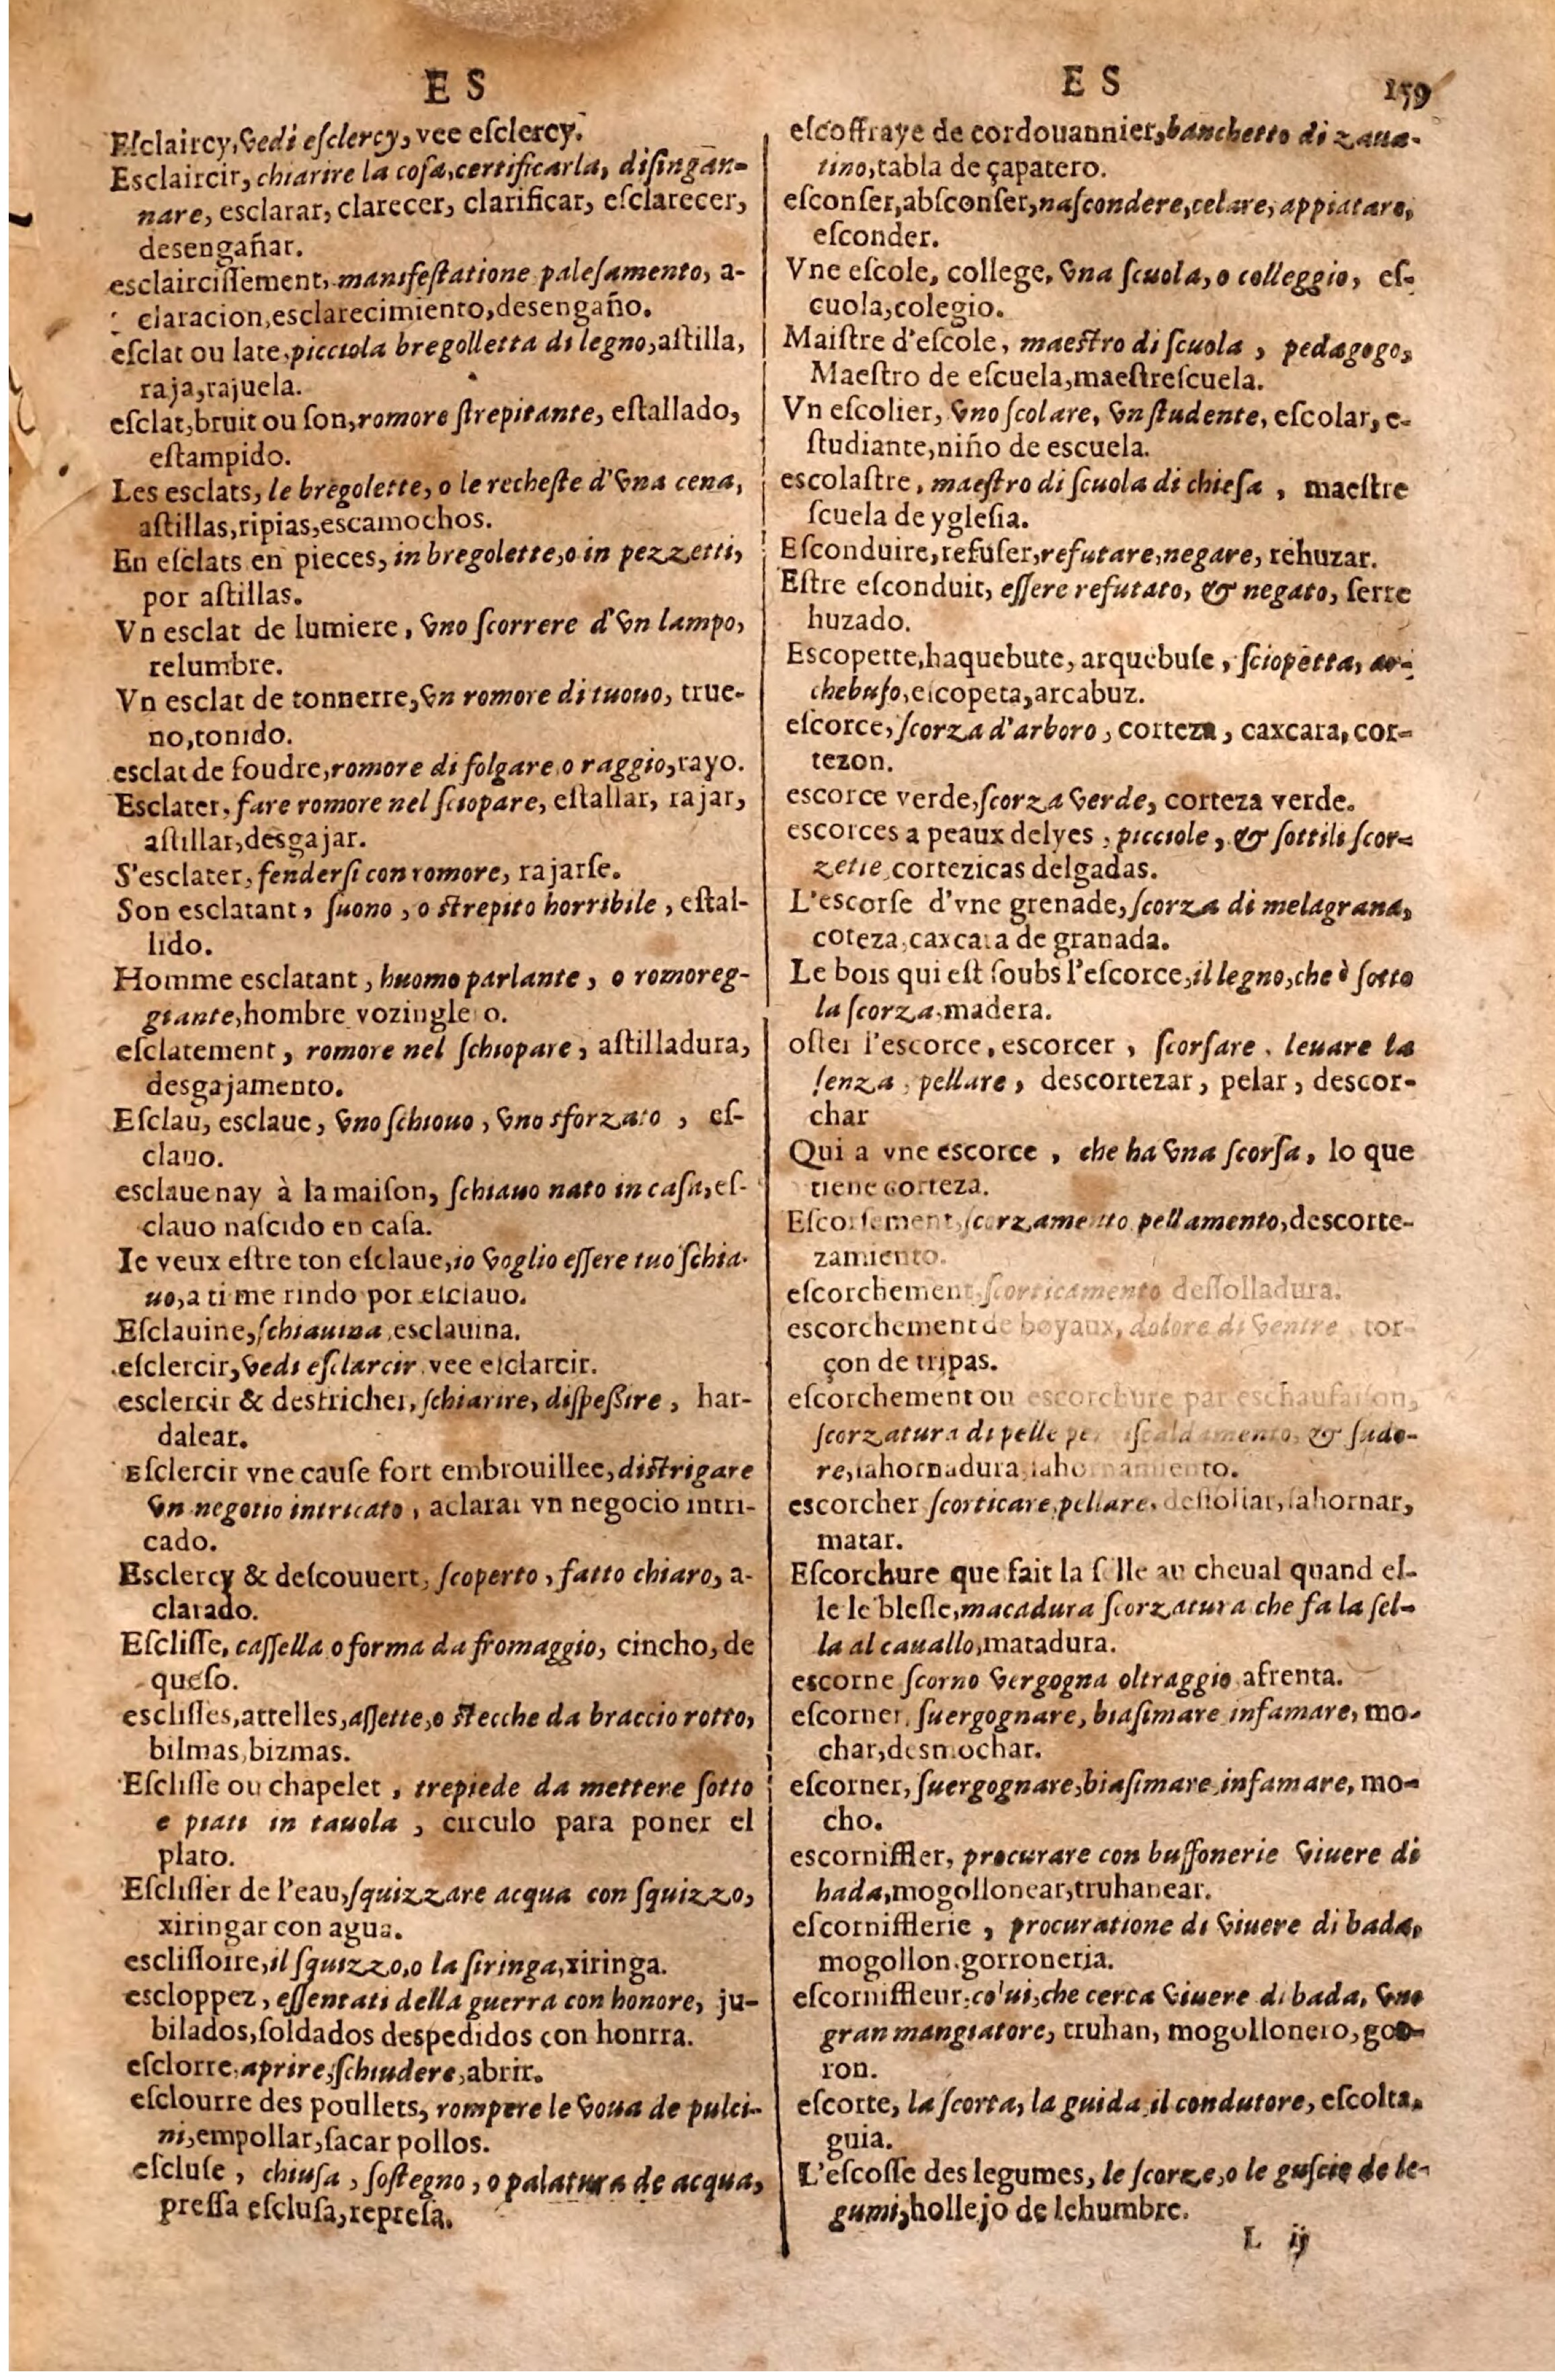 E S
Eſclaircy, vedi eſclercy, vee eſclercy.
Esclaircir, chiarire la coſa, certificarla, diſingan-
nare, esclarar, clarecer, clarificar, eſclarecer,
desengañar.
esclairciſſement, manifeſtatione paleſamento, a-
claracion, esclarecimiento, desengaño.
eſclat ou late, picciola bregolletta di legno, aſtilla,
raja, rajuela.
eſclat, bruit ou ſon, romore ſtrepitante, eſtallado,
eſtampido.
Les esclats, le bregolette, o le recheſte d'vna cena,
aſtillas, ripias, escamochos.
En eſclats en pieces, in bregolette, o in pezzetti,
por aſtillas.
Vn esclat de lumiere, vno ſcorrere d'vn lampo,
relumbre.
Vn esclat de tonnerre, vn romore di tuouo, true-
no, tonido.
esclat de foudre, romore di folgare o raggio, rayo.
Esclater, fare romore nel ſciopare, eſtallar, rajar,
aſtillar, desgajar.
S'esclater, fenderſi con romore, rajarſe.
Son esclatant, ſuono, o ſtrepito horribile, eſtal-
lido.
Homme esclatant, huomo parlante, o romoreg-
giante, hombre vozingle o.
eſclatement, romore nel ſchiopare, aſtilladura,
desgajamento.
Eſclau, esclaue, vno ſchiouo, vno sforzato, eſ-
clauo.
esclaue nay à la maiſon, ſchiauo nato in caſa, eſ-
clauo naſcido en caſa.
Ie veux eſtre ton eſclaue, io voglio eſſere tuo ſchia-
uo, a ti me rindo por eſclauo.
Eſclauine, ſchiauina, esclauina.
eſclercir, vedi eſclarcir, vee eſclarcir.
esclercir & deſtricher, ſchiarire, diſpeßire, har-
dalear.
Eſclercir vne cauſe fort embrouillee, diſtrigare
vn negotio intricato, aclarar vn negocio intri-
cado.
Esclercy & deſcouuert, ſcoperto, fatto chiaro, a-
clarado.
Eſcliſſe, caſſella o forma da fromaggio, cincho, de
queſo.
escliſſes, attelles, aſſette, o ſtecche da braccio rotto,
bilmas, bizmas.
Eſcliſſe ou chapelet, trepiede da mettere ſotto
e piati in tauola, circulo para poner el
plato.
Eſcliſſer de l'eau, ſquizzare acqua con ſquizzo,
xiringar con agua.
escliſſoire, il ſquizzo, o la ſiringa, xiringa.
escloppez, eſſentati della guerra con honore, ju-
bilados, ſoldados despedidos con honrra.
eſclorre, aprire, ſchiudere, abrir.
eſclourre des poullets, rompere le voua de pulci-
ni, empollar, ſacar pollos.
eſcluſe, chiuſa, ſoſtegno, o palatura de acqua,
preſſa eſcluſa, repreſa.
E S 159
eſcoffraye de cordouannier, banchetto di zaua-
tino, tabla de çapatero.
eſconſer, abſconſer, naſcondere, celare, appiatare,
eſconder.
Vne eſcole, college, vna ſcuola, o colleggio, eſ-
cuola, colegio.
Maiſtre d'eſcole, maeſtro di ſcuola, pedagogo,
Maeſtro de eſcuela, maeſtreſcuela.
Vn eſcolier, vno ſcolare, vn ſtudente, eſcolar, e-
ſtudiante, niño de escuela.
escolaſtre, maeſtro di ſcuola di chieſa, maeſtre
ſcuela de ygleſia.
Eſconduire, refuſer, refutare, negare, rehuzar.
Eſtre eſconduit, eſſere refutato, & negato, ſerre
huzado.
Escopette, haquebute, arquebuſe, ſciopetta, ar-
chebuſo, eſcopeta, arcabuz.
eſcorce, ſcorza d'arboro, corteza, caxcara, cor-
tezon.
escorce verde, ſcorza verde, corteza verde.
escorces a peaux delyes, picciole, & ſottili ſcor-
zette, cortezicas delgadas.
L'escorſe d'vne grenade, ſcorza di melagrana,
coteza, caxcara de granada.
Le bois qui eſt ſoubs l'eſcorce, il legno, che è ſotto
la ſcorza, madera.
oſter l'escorce, escorcer, ſcorſare, leuare la
ſenza, pellare, descortezar, pelar, descor-
char
Qui a vne escorce, che ha vna ſcorſa, lo que
tiene corteza.
Eſcorſement, ſcorzamento pellamento, descorte-
zamiento.
eſcorchement, ſcorticamento deſſolladura.
escorchement de boyaux, dolore di ventre, tor-
çon de tripas.
eſcorchement ou escorchure par eschaufaiſon,
ſcorzatura di pelle per riſcaldamento, & ſudo-
re, ſahornadura, ſahornamiento.
escorcher ſcorticare, pellare, deſſollar, ſahornar,
matar.
Eſcorchure que fait la ſ lle au cheual quand el-
le le bleſſe, macadura ſcorzatura che fa la ſel-
la al cauallo, matadura.
escorne ſcorno vergogna oltraggio afrenta.
eſcorner, ſuergognare, biaſimare infamare, mo-
char, desmochar.
eſcorner, ſuergognare, biaſimare, infamare, mo-
cho.
escorniffler, procurare con buffonerie viuere di
bada, mogollonear, truhanear.
eſcorniſſlerie, procuratione di viuere di bada,
mogollon, gorroneria.
eſcorniffleur, co'ui, che cerca viuere di bada, vno
gran mangiatore, truhan, mogollonero, gor-
ron.
eſcorte, la ſcorta, la guida, il condutore, eſcolta,
guia.
L'eſcoſſe des legumes, le ſcorze, o le guſcie de le-
gumi, hollejo de lehumbre.
L ij